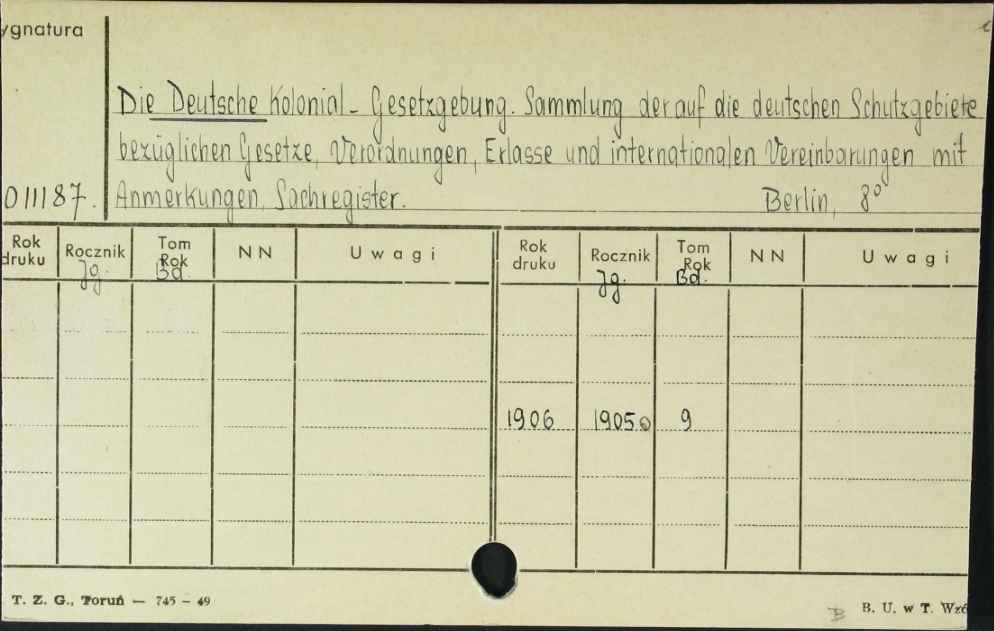 ygnatura
Die Deutsche Kolonial-Gesetzgebung. Sammlung der auf die deutschen Schutzgebiete
bezüglichen Gesetze, Verordnungen, Erlasse und internationalen Vereinbarungen mit
011187. Anmerkungen, Sachregister. Berlin, 8°
Rok druku Rocznik Jg. Tom Rok Bd. NN Uwagi Rok druku Rocznik Jg. Tom Rok Bd. NN Uwagi
1906 1905 9
T. Z. G., Toruń — 745 – 49 B. U. w T. Wzó